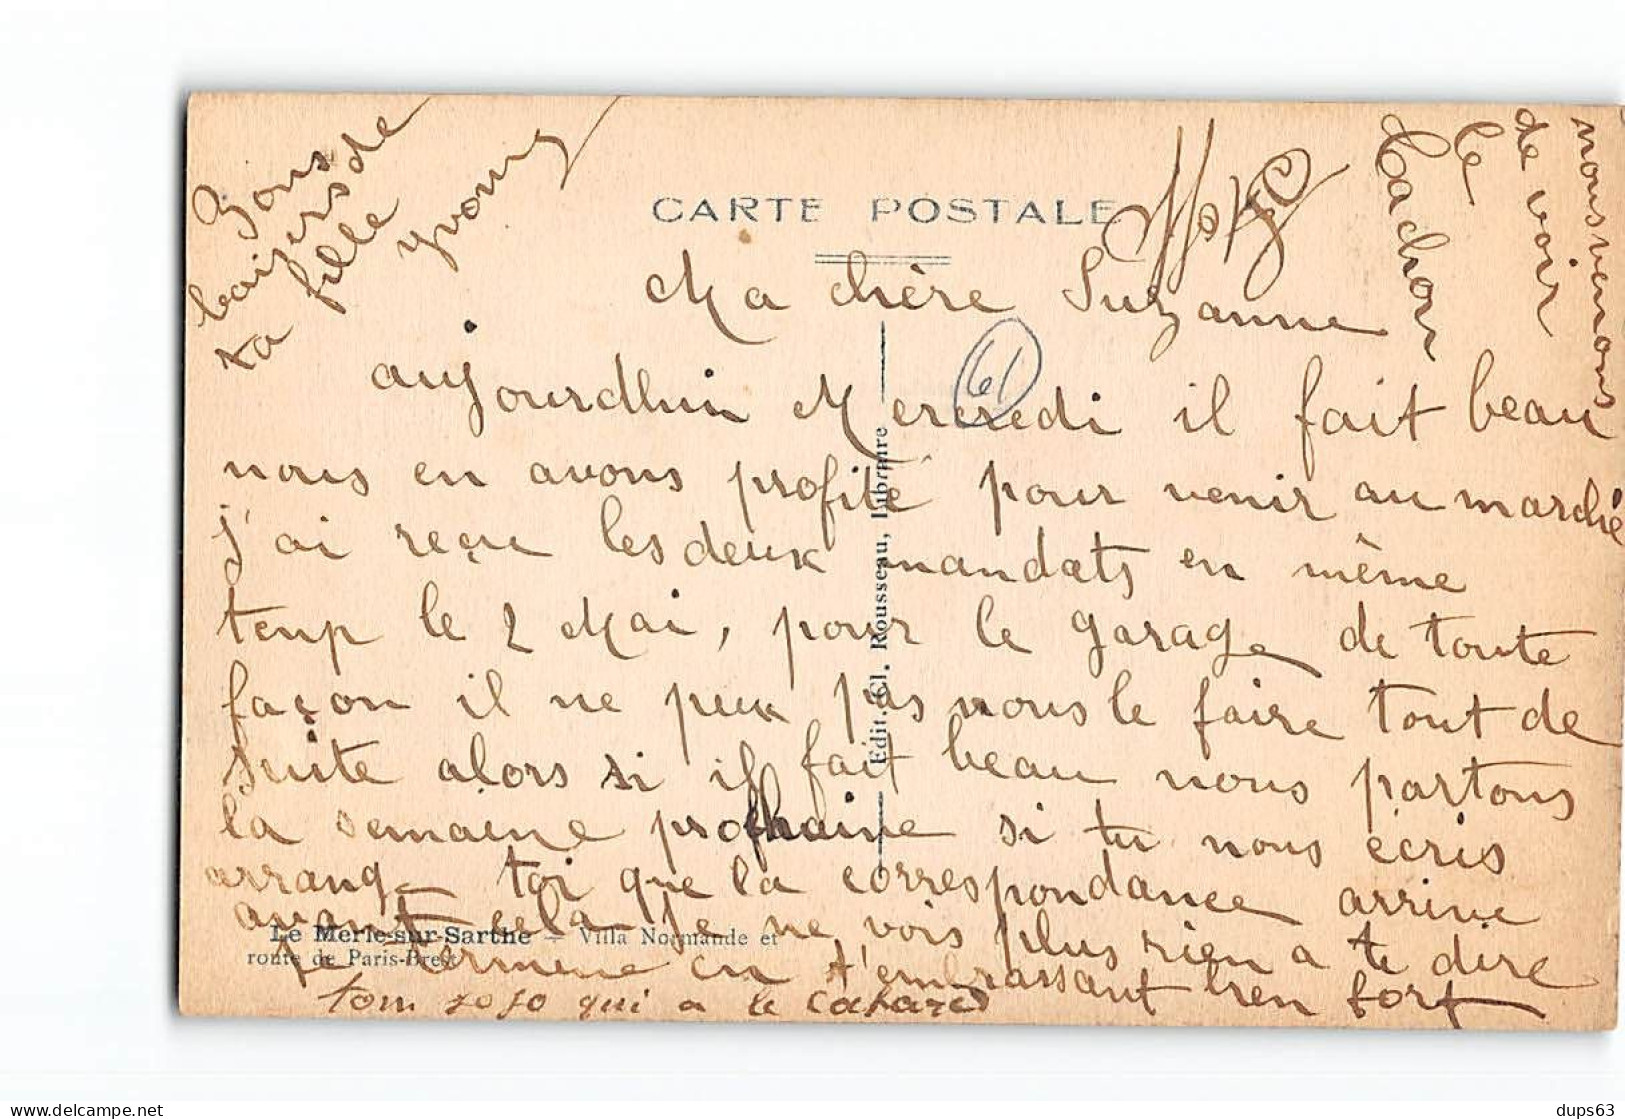 Bons
baisers de
ta fille
yvonne
CARTE POSTALE
nous venons
de voir
le
Cachou
Ma chère Suzanne
61
aujourdhui Mercredi il fait beau
nous en avons profité pour venir au marché
j'ai reçu les deux mandats en même
temp le 2 Mai, pour le garage de toute
façon il ne peux pas nous le faire tout de
suite alors si il fait beau nous partons
la semaine prochaine si tu nous écris
arrange toi que la correspondance arrive
avant cela je ne vois plus rien a te dire
je termine en t'embrassant bien fort
tom jojo qui a le cafard
Edit. Cl. Rousseau, libraire
Le Merle-sur-Sarthe – Villa Normande et
route de Paris-Brest
dups63